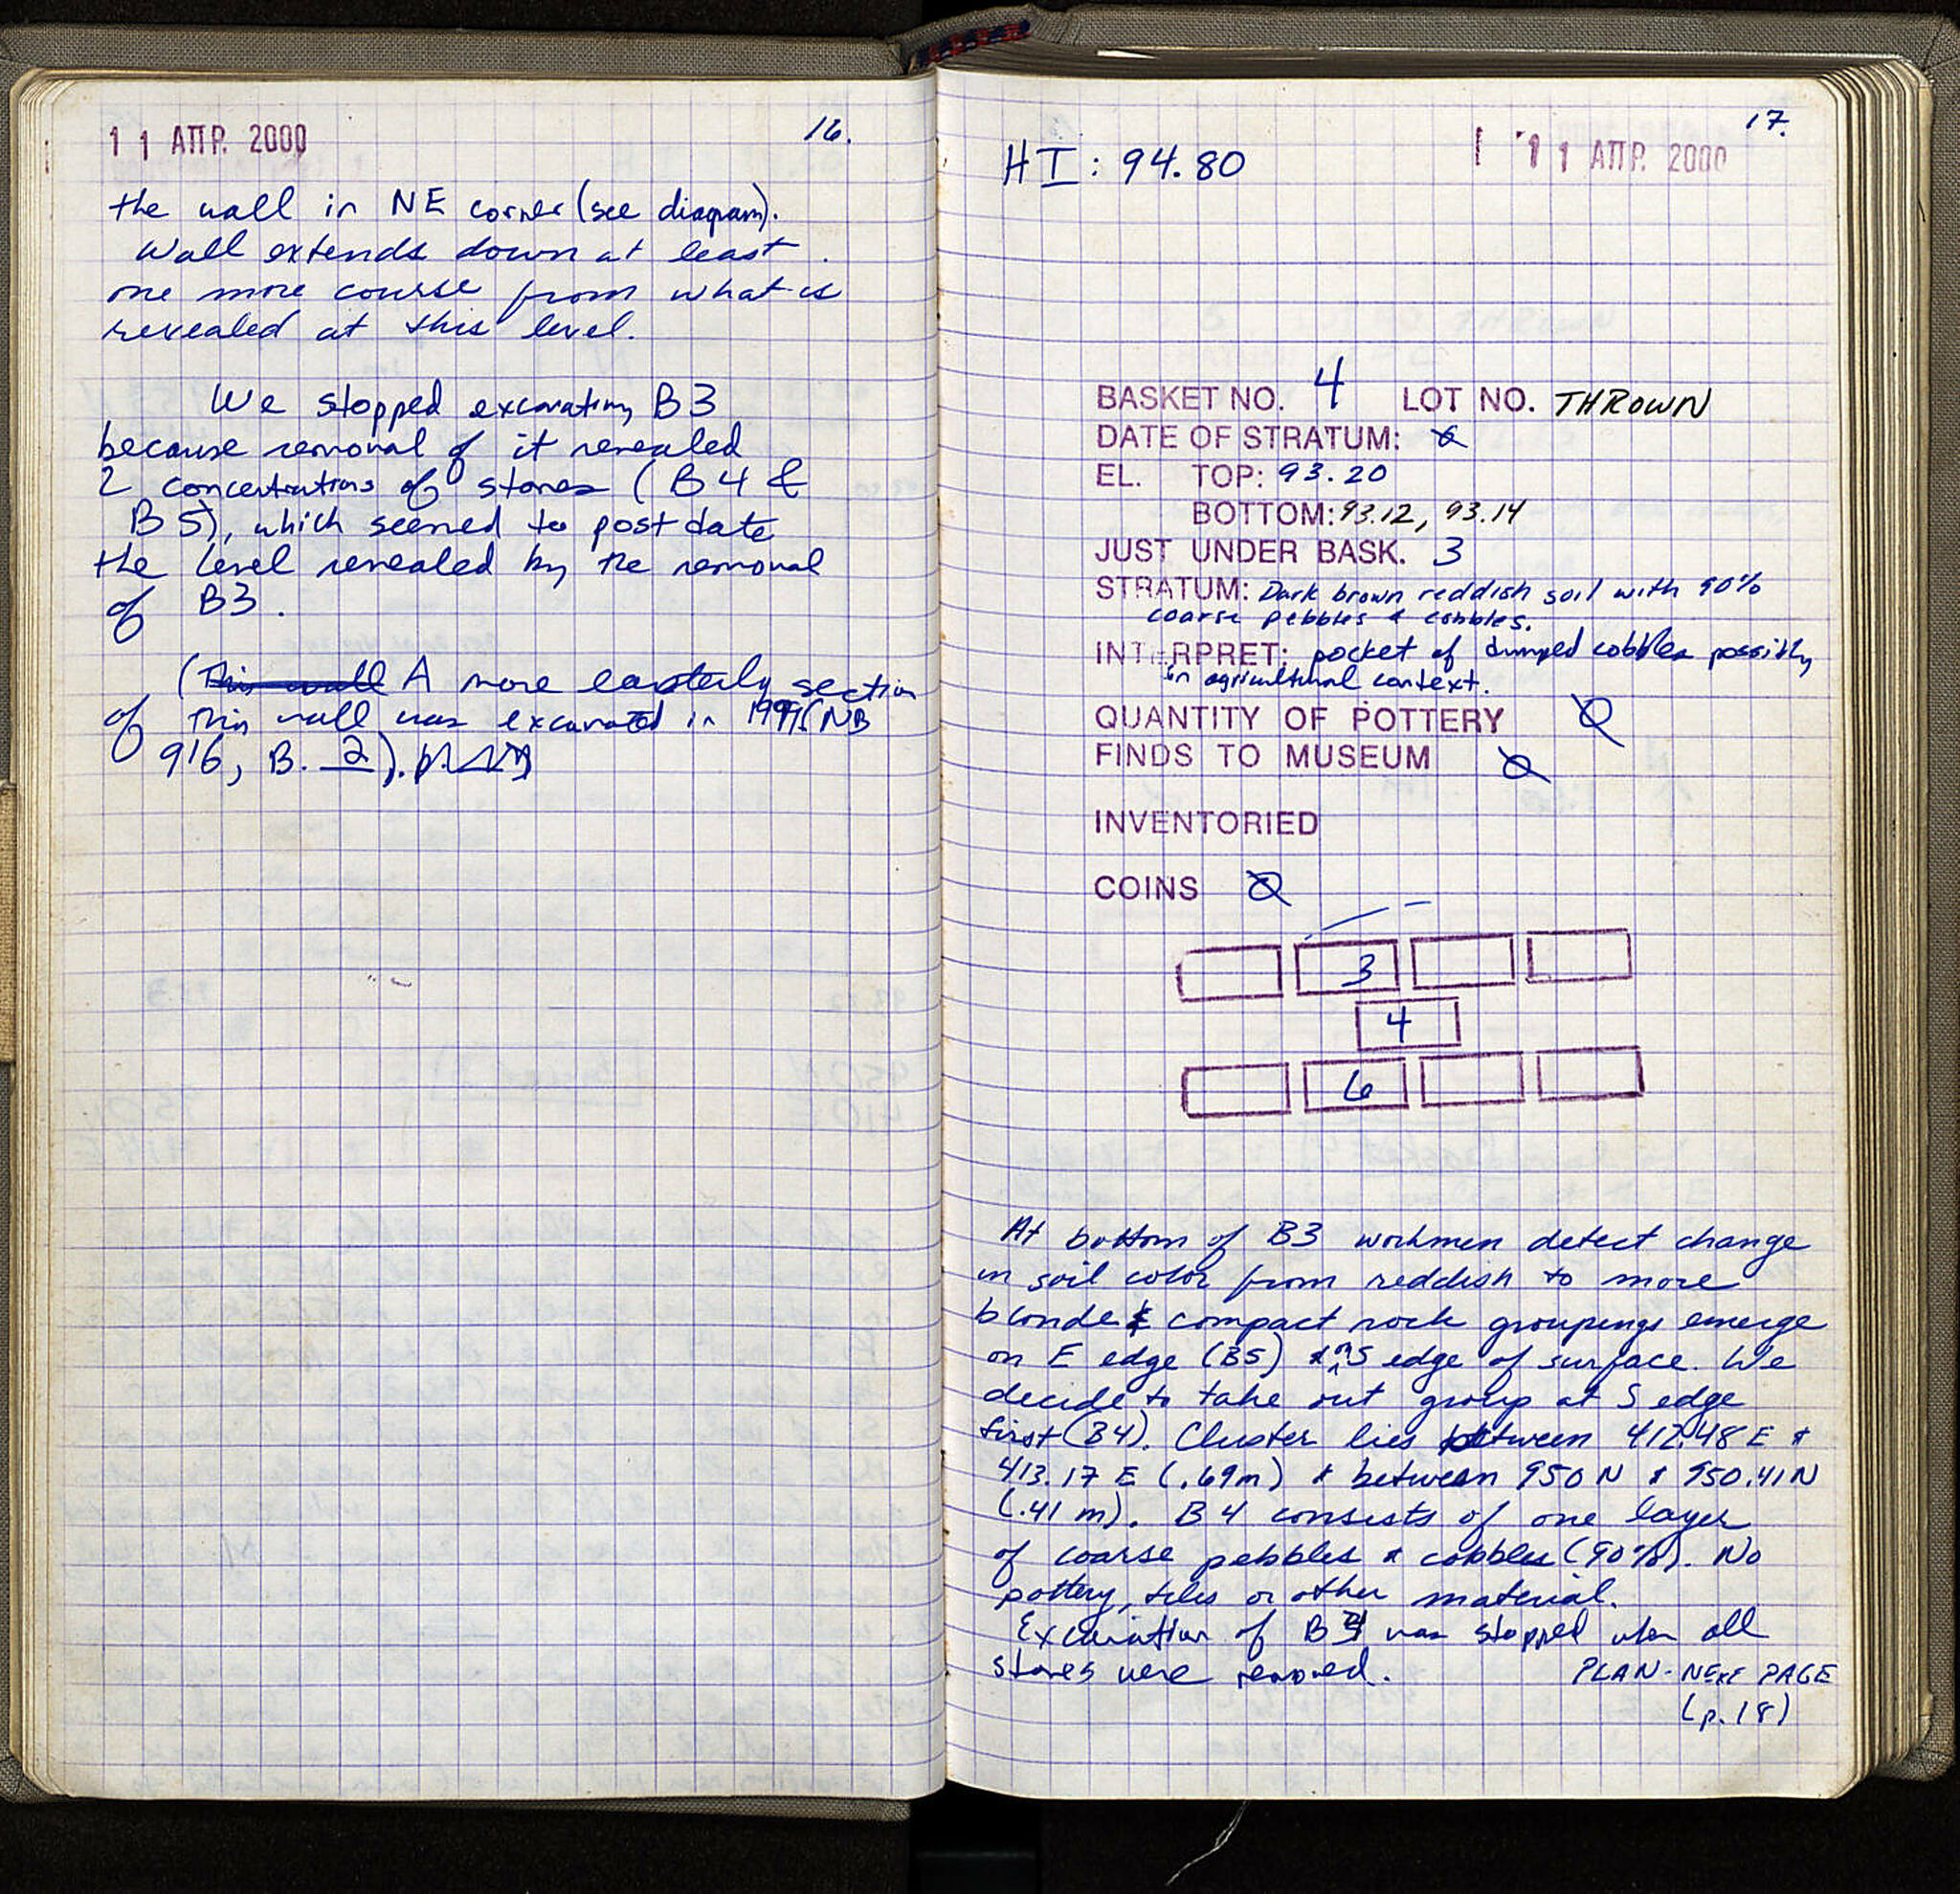 11 ΑΠΡ. 2000
16.
the wall in NE corner (see diagram).
Wall extends down at least
one more course from what is
revealed at this level.
We stopped excavating B3
because removal of it revealed
2 concentrations of stones (B4 &
B5), which seemed to post date
the level revealed by the removal
of B3.
(This wall A more easterly section
of this wall was excavated in (NB
916, B. 2).
17.
11 ΑΠΡ. 2000
HI: 94.80
BASKET NO. 4 LOT NO. THROWN
DATE OF STRATUM:
EL. TOP: 93.20
BOTTOM: 93.12, 93.14
JUST UNDER BASK. 3
STRATUM: Dark brown reddish soil with 90%
coarse pebbles & cobbles.
INTERPRET: pocket of dumped cobbles possibly
in agricultural context.
QUANTITY OF POTTERY Ø
FINDS TO MUSEUM Ø
INVENTORIED
COINS Ø
3
4
6
At bottom of B3 workmen detect change
in soil color from reddish to more
blonde & compact rock groupings emerge
on E edge (B5) & on S edge of surface. We
decide to take out group at S edge
first (B4). Cluster lies between 412.48 E &
413.17 E (.69m) & between 950 N & 950.41 N
(.41 m). B4 consists of one layer
of coarse pebbles & cobbles (90%). No
pottery, tiles or other material.
Excavation of B4 was stopped when all
stones were removed.
PLAN - NEXT PAGE
(p. 18)